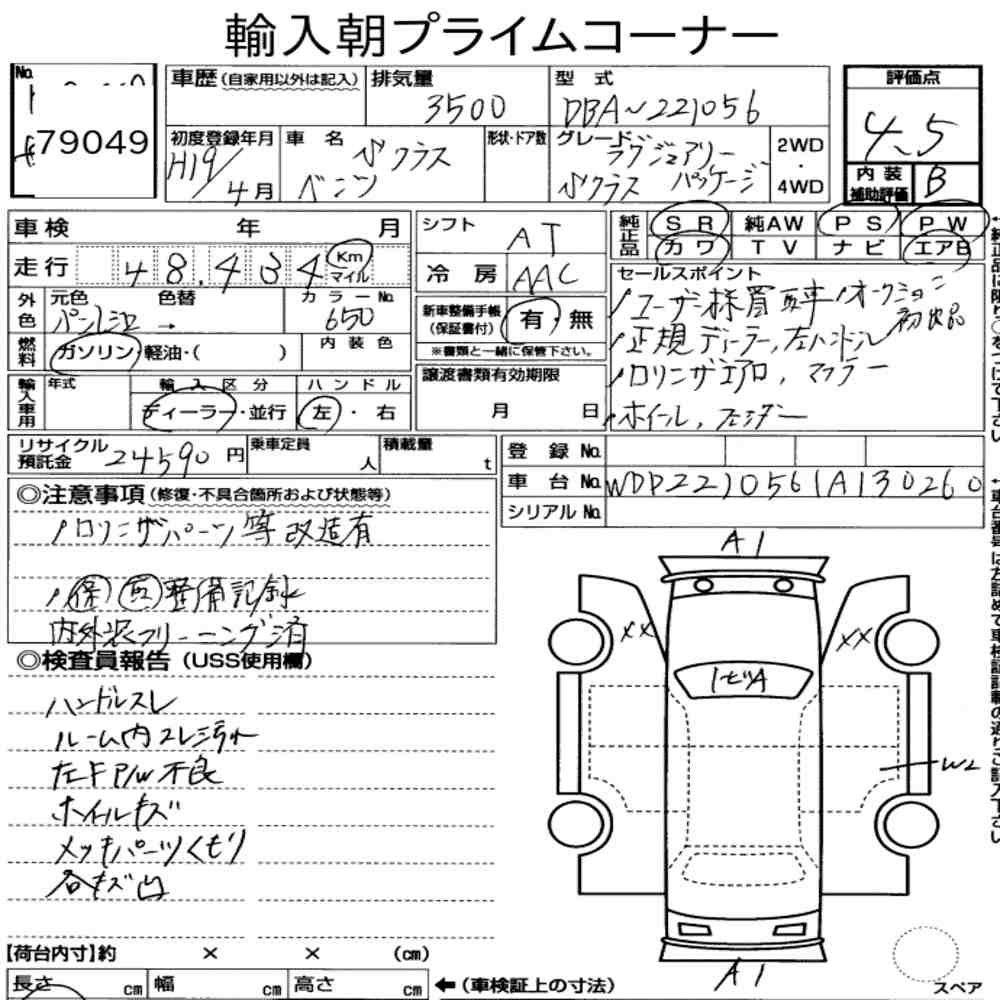 輸入朝プライムコーナー
No.
79049
車歴(自家用以外は記入)
排気量
3500
型式
DBA-221056
評価点
4.5
初度登録年月
H19/4月
車名
ベンツ
Sクラス
形状・ドア数
グレード
ラグジュアリー
Sクラス パッケージ
2WD
・
4WD
内装
補助評価
B
車検 年 月
走行 48,434 Km
マイル
シフト
AT
冷房
AAC
純正品
SR 純AW PS PW
カワ TV ナビ エアB
外色
元色 色替 カラーNo.
→ 650
燃料
ガソリン・軽油・( )
内装色
新車整備手帳
(保証書付)
有・無
※書類と一緒に保管下さい。
セールスポイント
ユーザー様買取車 オークション
初出品
正規ディーラー,左ハンドル
ロリンザエアロ, マフラー
ホイール, フェンダー
輸入車用
年式 輸入区分 ハンドル
ディーラー・並行 左・右
譲渡書類有効期限
月 日
リサイクル
預託金
24590円
乗車定員
人
積載量
t
登録No.
車台No.
WDD2210561A130260
シリアルNo.
◎注意事項(修復・不具合箇所および状態等)
ロリンザパーツ等改造有
保 取 整備記録
内外装クリーニング済
◎検査員報告(USS使用欄)
ハンドルスレ
ルーム内スレ汚れ
左F P/W不良
ホイルキズ
メッキパーツくもり
各キズ凹
A1
XX
XX
トビA
W2
A1
【荷台内寸】約 × × (cm)
長さ cm 幅 cm 高さ cm
←(車検証上の寸法)
スペア
↑純正品は限り○をつけて下さい
↑車台番号は左詰めで車検証記載の通りご記入下さい